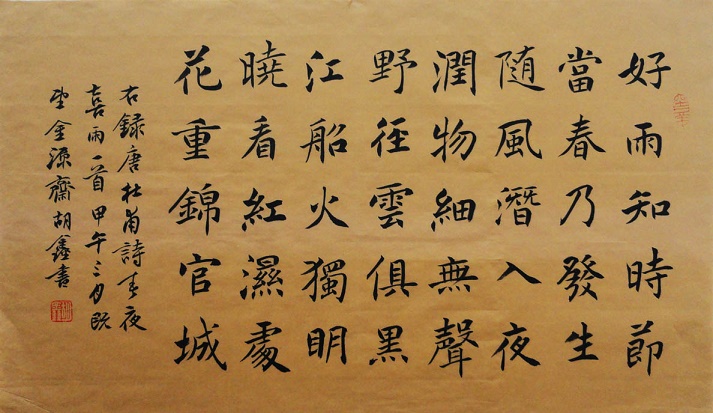 好雨知時節
當春乃發生
隨風潛入夜
潤物細無聲
野徑雲俱黑
江船火獨明
曉看紅濕處
花重錦官城
右録唐杜甫詩春夜
喜雨一首甲午三月既
望金源齋胡鑫書